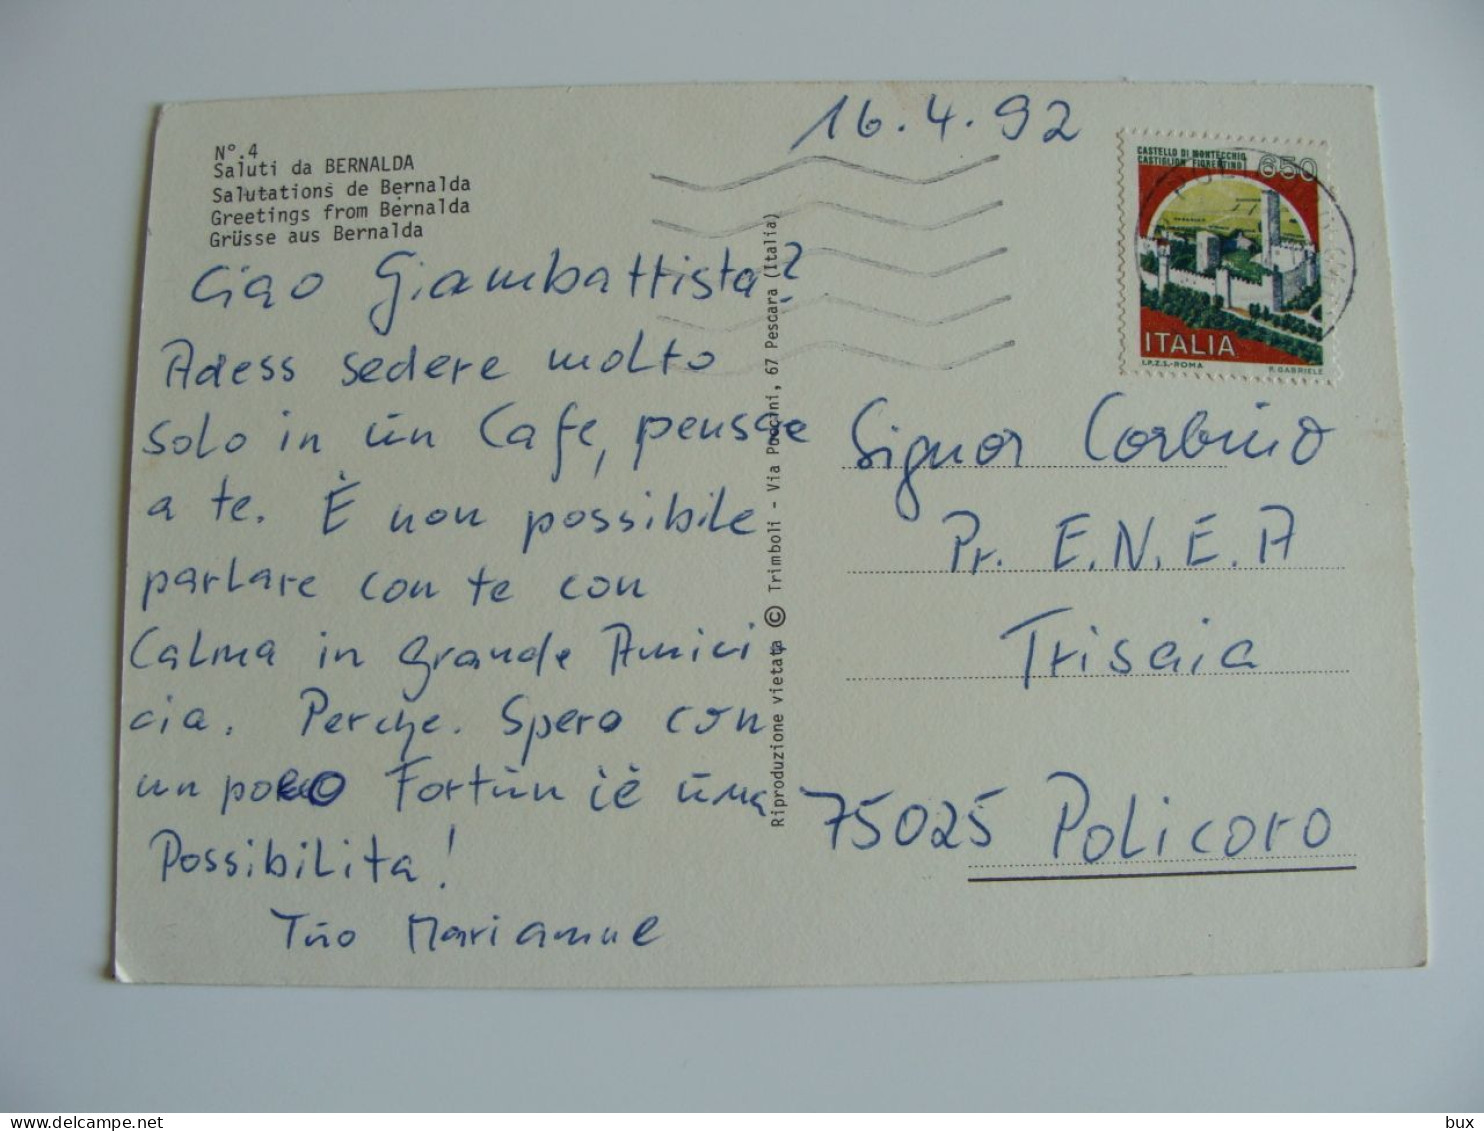 N°.4
Saluti da BERNALDA
Salutations de Bernalda
Greetings from Bernalda
Grüsse aus Bernalda
16.4.92
CASTELLO DI MONTECCHIO
CASTIGLION FIORENTINO
650
ITALIA
I.P.Z.S.-ROMA P. GABRIELE
Ciao Giambattista
Adess sedere molto
solo in ūn Cafe, pensare
a te. È non possibile
parlare con te con
Calma in grande Amici
cia. Perche. Spero con
un poco Fortūn iè ūna
Possibilita!
Tūo Marianne
Riproduzione vietata © Trimboli - Via Puccini, 67 Pescara (Italia)
Signor Corbino
Pr. E.N.E.A
Trisaia
75025 Policoro
bux